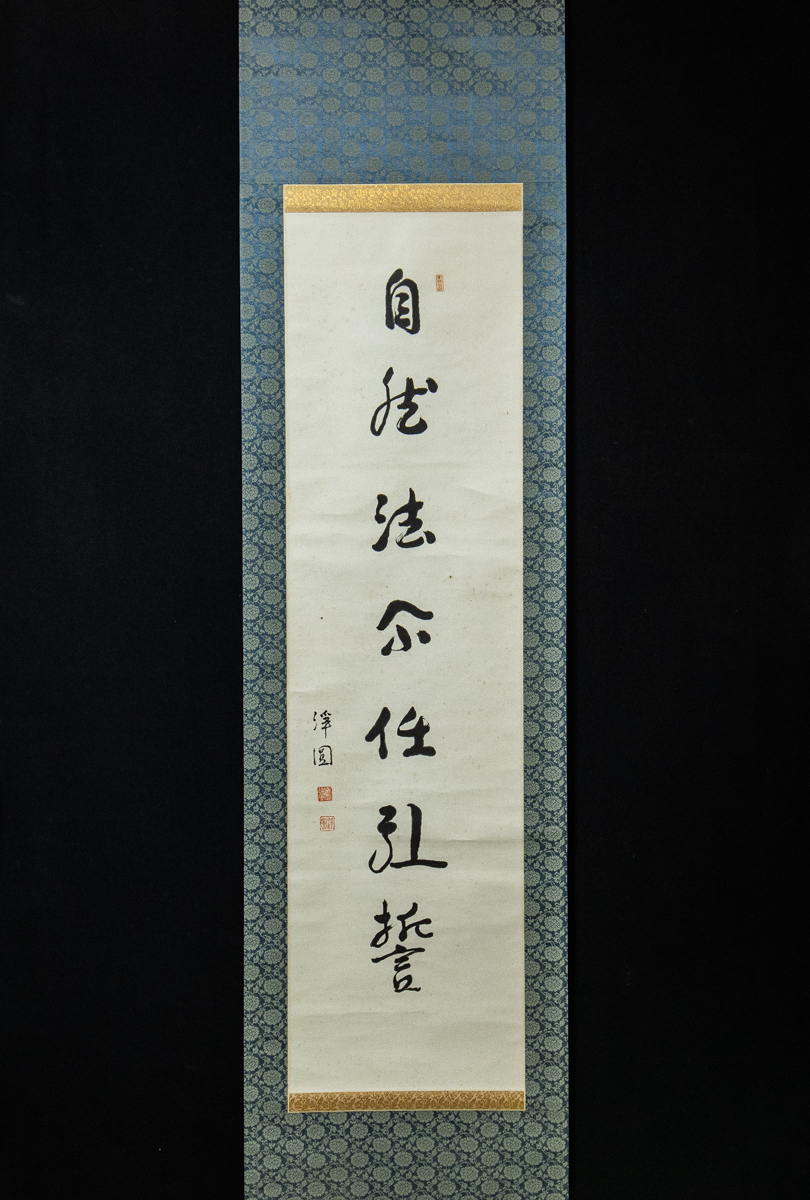 自然法尒任弘誓
澤圓